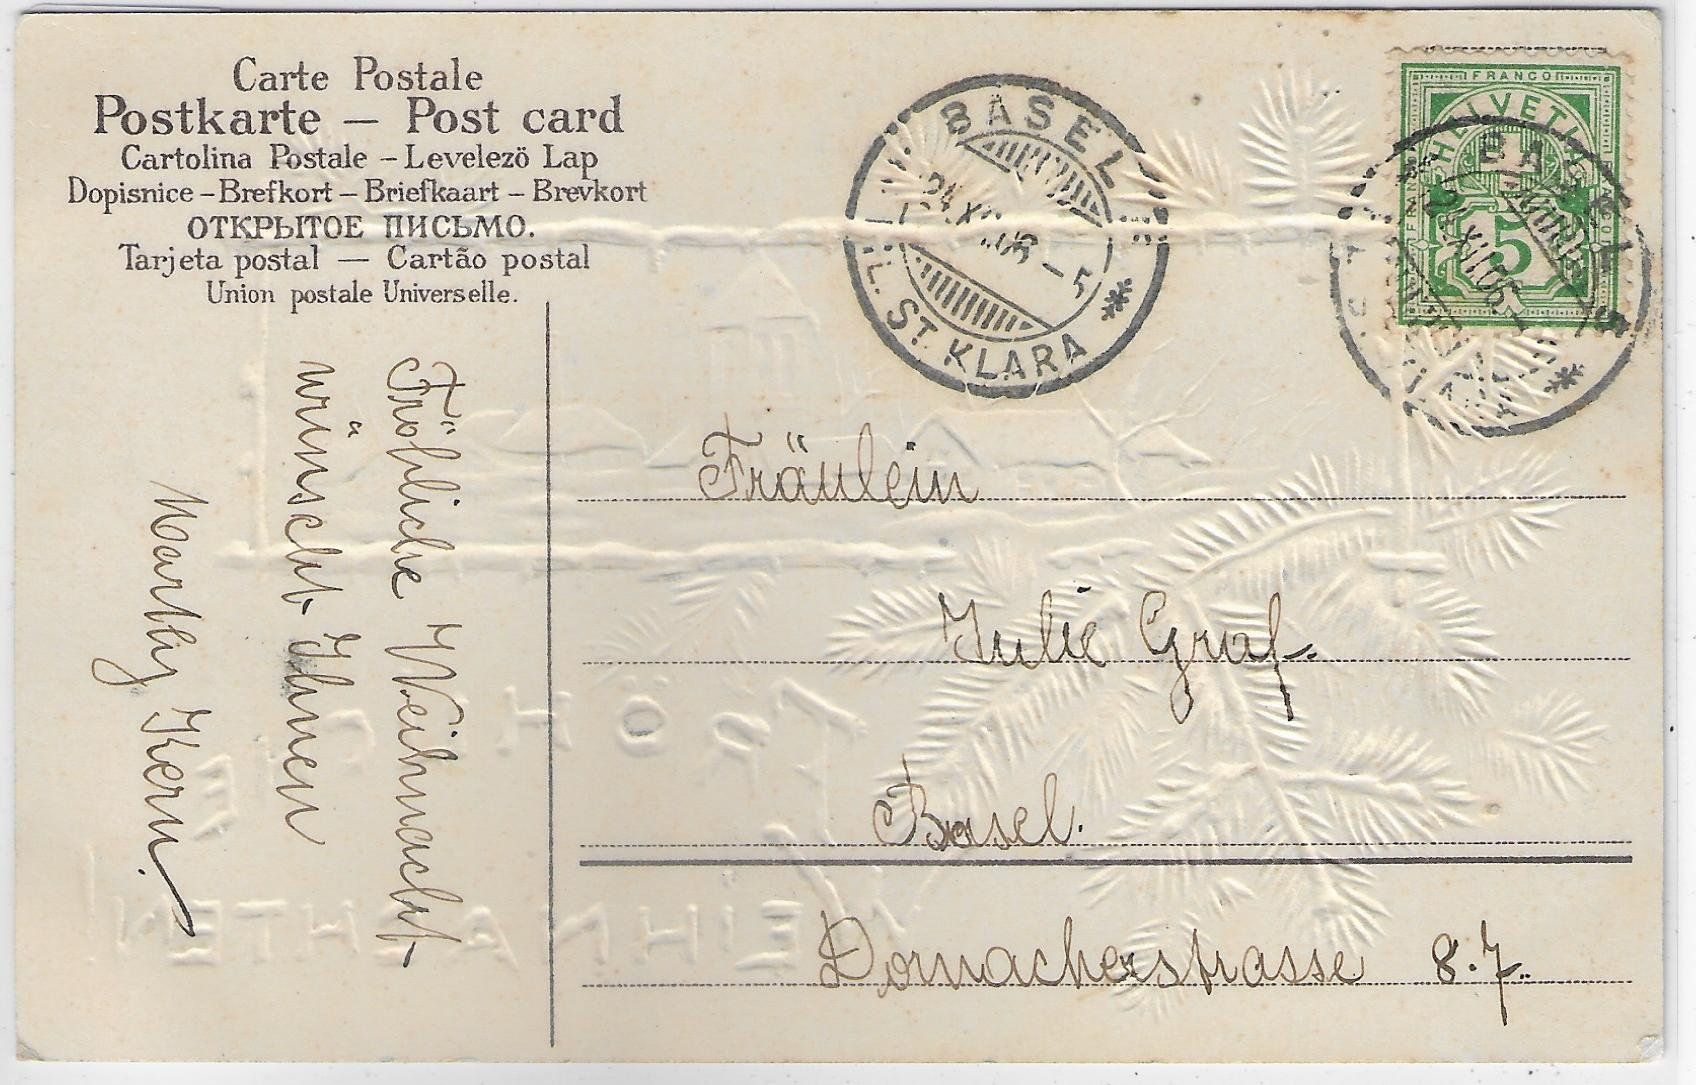 Carte Postale
Postkarte – Post card
Cartolina Postale – Levelező Lap
Dopisnice – Brefkort – Briefkaart – Brevkort
ОТКРЫТОЕ ПИСЬМО.
Tarjeta postal — Cartão postal
Union postale Universelle.
BASEL
24.XII.06 – 5
FIL. ST. KLARA
FRANCO
HELVETIA
5
BASEL
XII.06
Fröhliche Weihnacht
wünscht Ihnen
Marthy Kern.
Fräulein
Julie Graf.
Basel.
Dornacherstrasse 87.
FRÖHLICHE
WEIHNACHTEN!